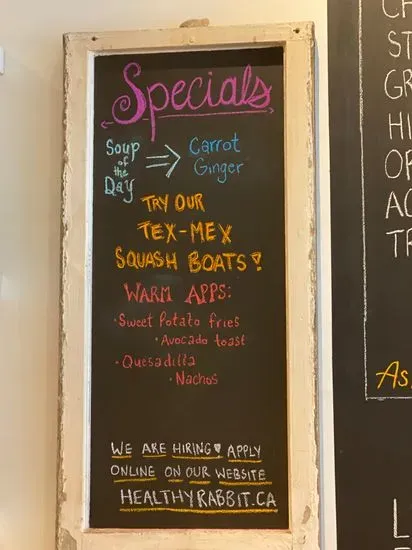 Specials
Soup of the Day ⇒ Carrot Ginger
TRY OUR
TEX-MEX
SQUASH BOATS!
WARM APPS:
·Sweet Potato fries
·Avocado toast
·Quesadilla
·Nachos
WE ARE HIRING! APPLY
ONLINE ON OUR WEBSITE
HEALTHYRABBIT.CA
As